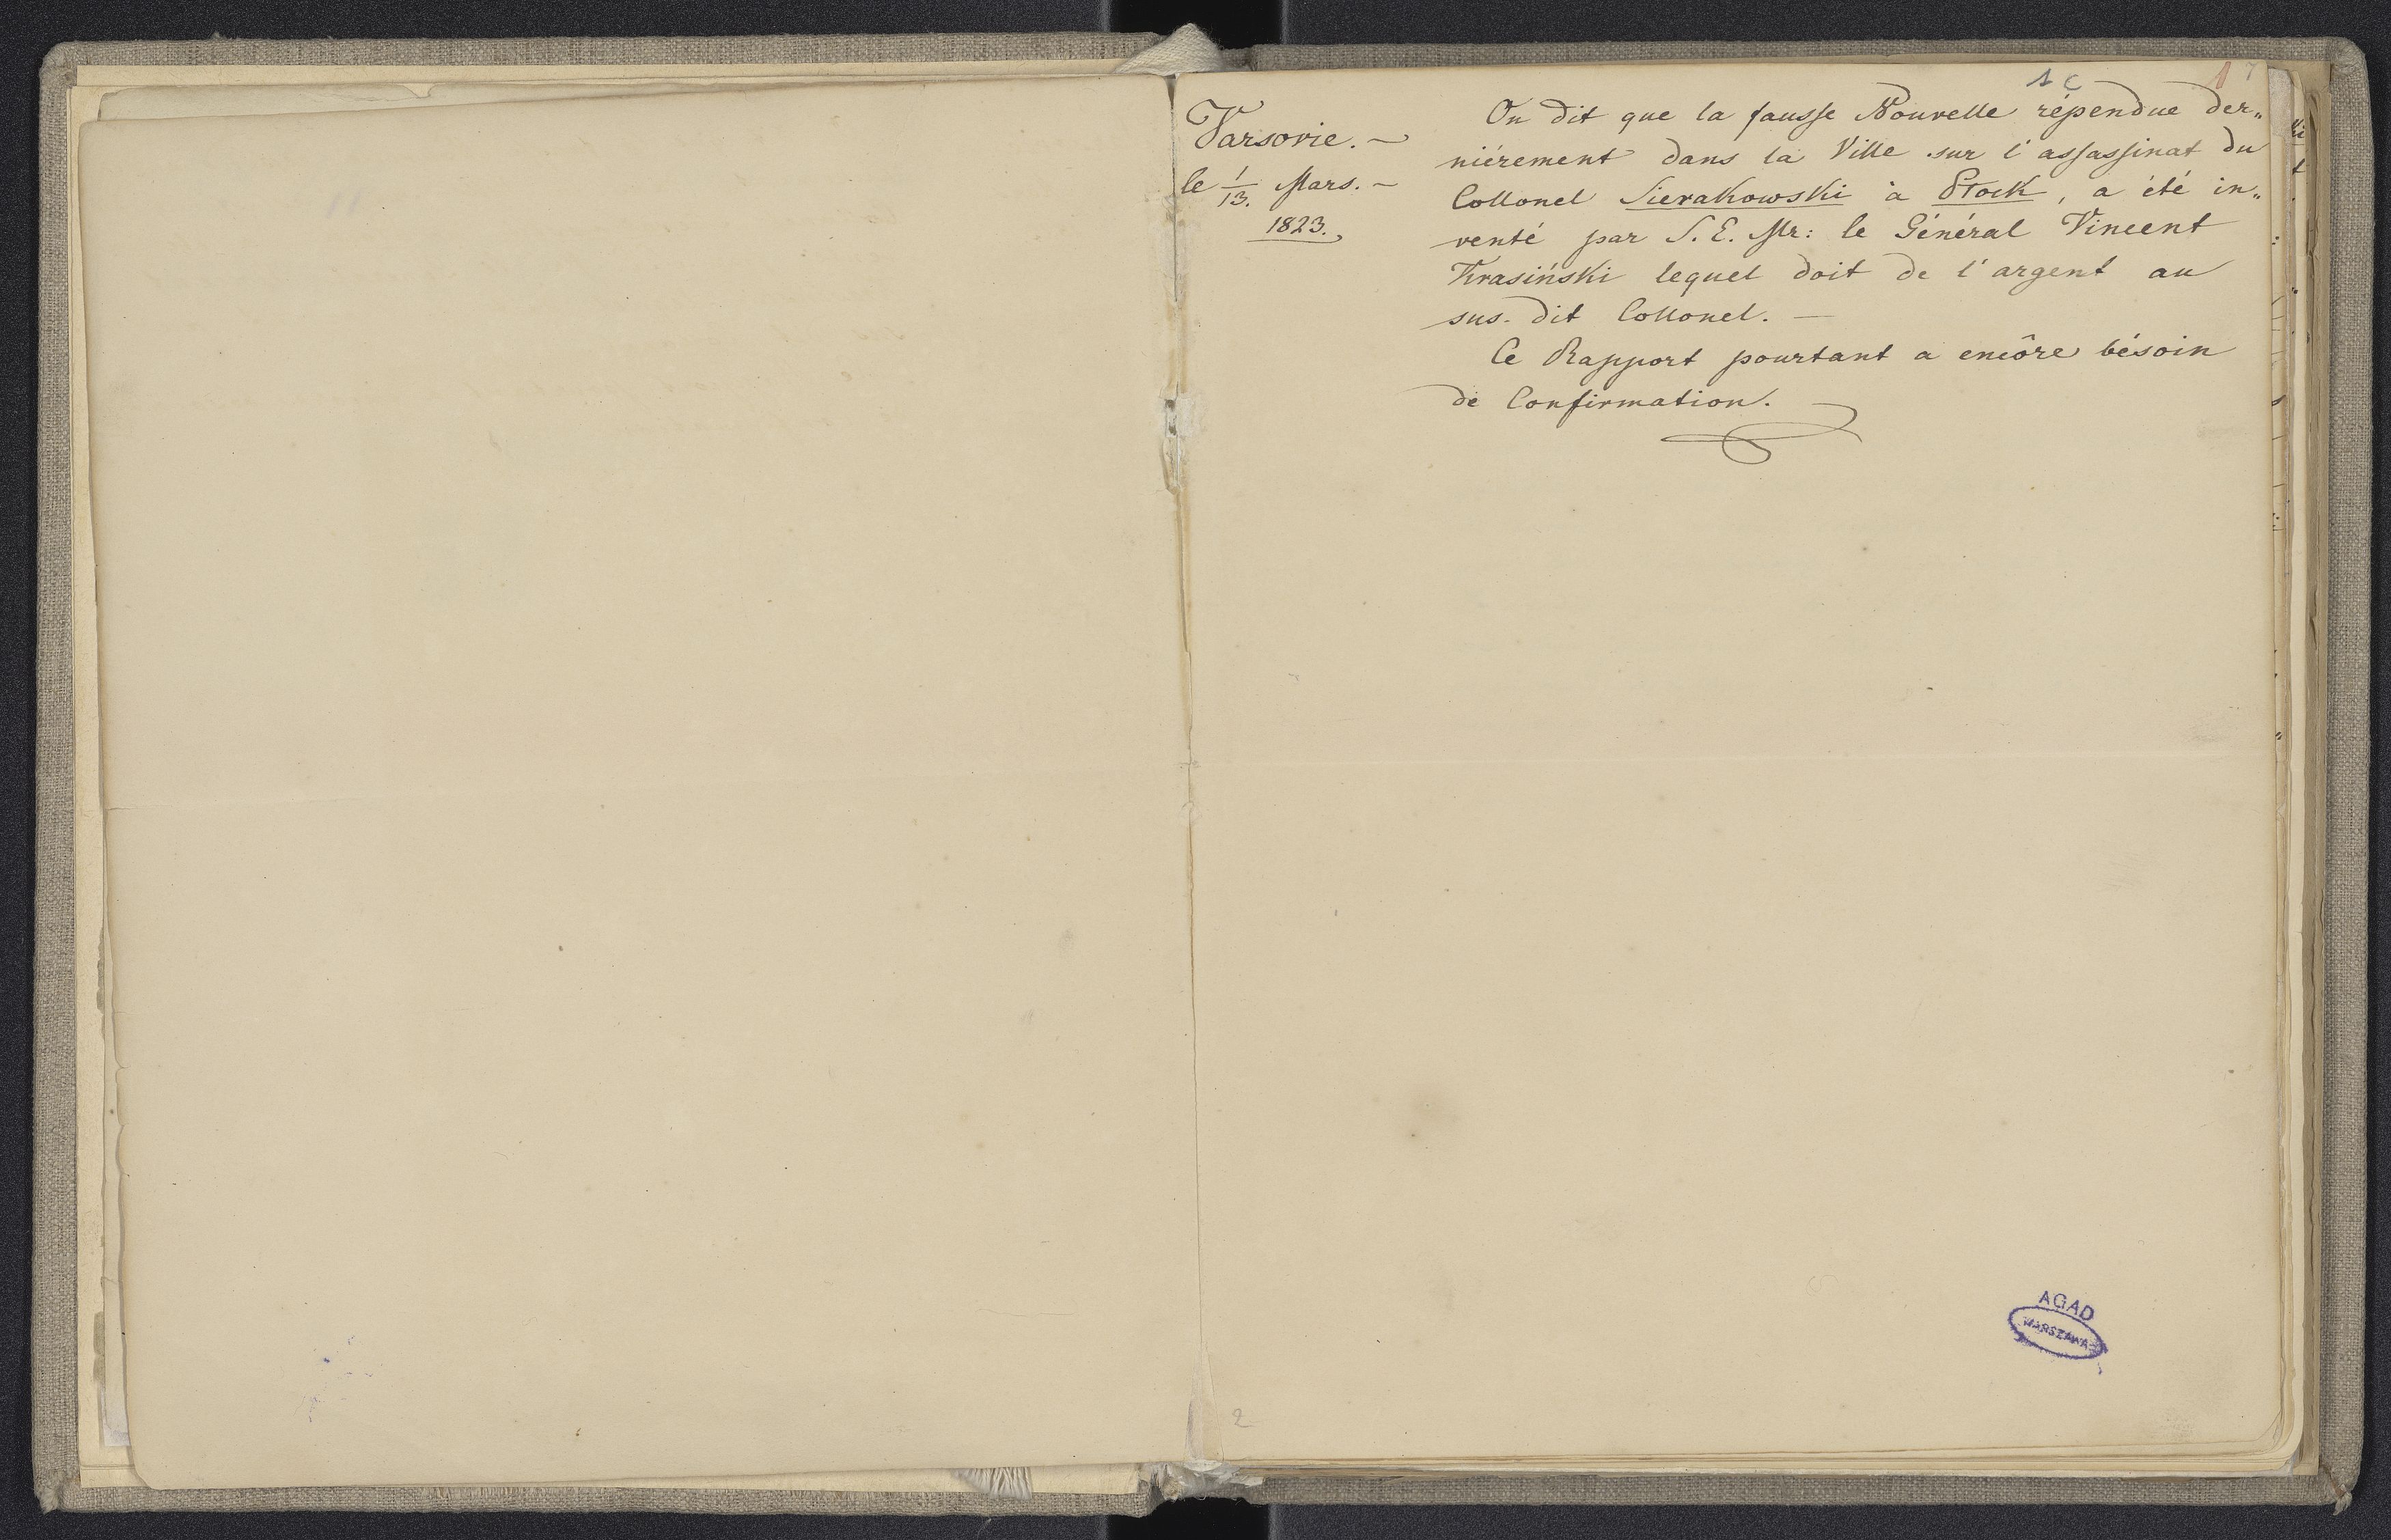 Varsovie. –
le 1/13. Mars. –
1823.
On dit que la fausse Nouvelle répendue der„
niérement dans la Ville sur l'assassinat du
Collonel Sierakowski à Płock, a été in„
venté par S. E. Mr: le Général Vincent
Krasiński lequel doit de l'argent au
sus-dit Collonel. –
Ce Rapport pourtant a encôre bésoin
de Confirmation.
AGAD
WARSZAWA
2